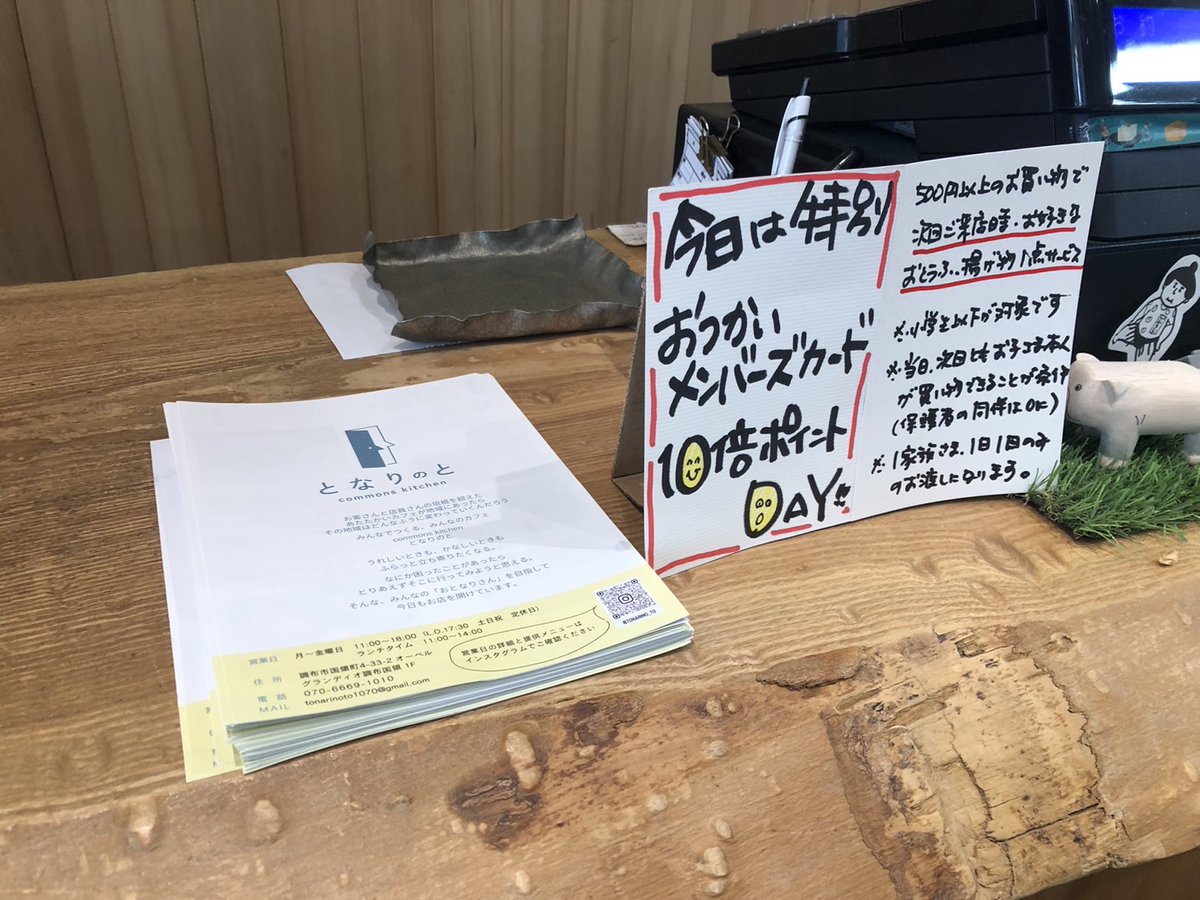 となりのと
commons kitchen
お客さんと店員さんの垣根を超えた
あたたかいカフェが地域にあったら、
その地域はどんなふうに変わっていくんだろう
みんなでつくる、みんなのカフェ
commons kitchen
となりのと
うれしいときも、かなしいときも
ふらっと立ち寄りたくなる、
なにか困ったことがあったら
とりあえずそこに行ってみようと思える。
そんな、みんなの「おとなりさん」を目指して
今日もお店を開けています。
営業日 月〜金曜日 11:00〜18:00 (L.O.17:30 土日祝 定休日)
ランチタイム 11:00〜14:00
住所 調布市国領町4-33-2 オーベル
グランディオ調布国領 1F
電話 070-6669-1010
MAIL tonarinoto1070@gmail.com
営業日の詳細と提供メニューは
インスタグラムでご確認ください
@TONARINO_TO
今日は特別
おつかい
メンバーズカード
10倍ポイント
DAY!!
500円以上のお買い物で
次回ご来店時・お好きな
おとうふ、揚げ物1点サービス
※小学生以下が対象です
※当日、次回ともお子さま本人
が買い物できることが条件
(保護者の同伴はOK)
※1家族さま、1日1回のみ
のお渡しになります。